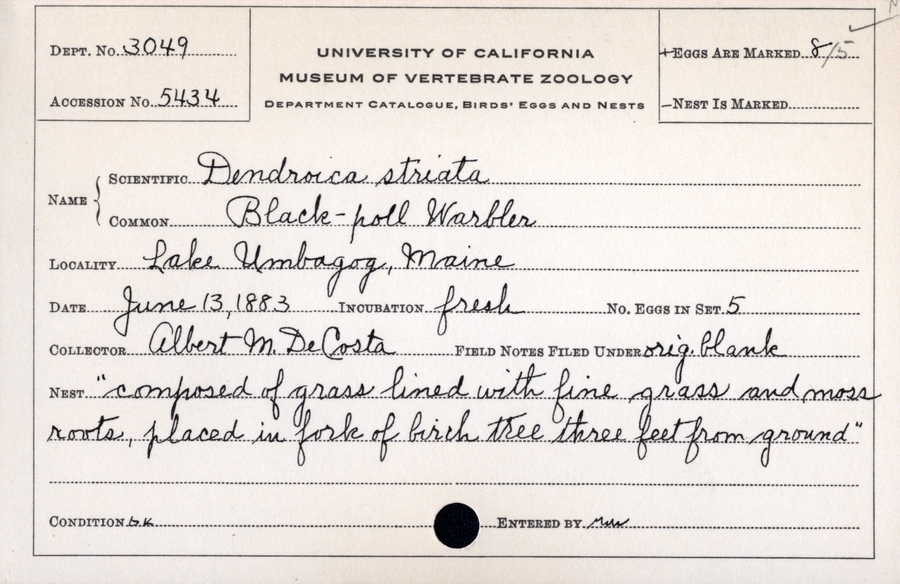 DEPT. No. 3049
ACCESSION No. 5434
UNIVERSITY OF CALIFORNIA
MUSEUM OF VERTEBRATE ZOOLOGY
DEPARTMENT CATALOGUE, BIRDS' EGGS AND NESTS
EGGS ARE MARKED 8/5
NEST IS MARKED
NAME
SCIENTIFIC Dendroica striata
COMMON Black-poll Warbler
LOCALITY Lake Umbagog, Maine
DATE June 13, 1883 INCUBATION fresh No. EGGS IN SET 5
COLLECTOR Albert M. DeCosta FIELD NOTES FILED UNDER orig. blank
NEST "composed of grass lined with fine grass and moss
roots, placed in fork of birch tree three feet from ground"
CONDITION ENTERED BY